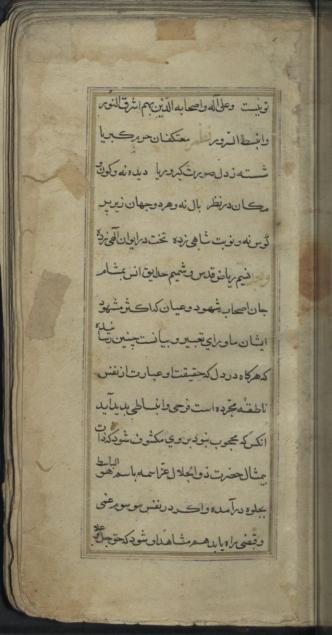 توئیست وعلی آله واصحابه الذین بهم اشرق النور
وانبسط السرور نظم معتکفان حرم کبریا
شسته ز دل صورت کبر و ریا دیده نه و کون و
مکان در نظر بال نه و هر دو جهان زیر پر
کوس نه و نوبت شاهی زده تخت در ایوان الهی زده
نسیم ریاض قدس و شمیم حدایق انس بمشام
جان اصحاب شهود و عیان که اکثر مشهود
ایشان ماورای تعبیر و بیانست چنین رسانیده
که هرکاه در دل که حقیقت او عبارت از نفس
ناطقه مجرده است فرحی و انبساطی پدید آید
انکس که محجوب نبود بر وی مکشوف شود که ذات
بیمثال حضرت ذو الجلال عز اسمه باسم هو الباسط
بجلوه درآمده و اکر در نفس موسوم غمی
و قبضی راه یابد هم مشاهد او شود که حق جل وعلا